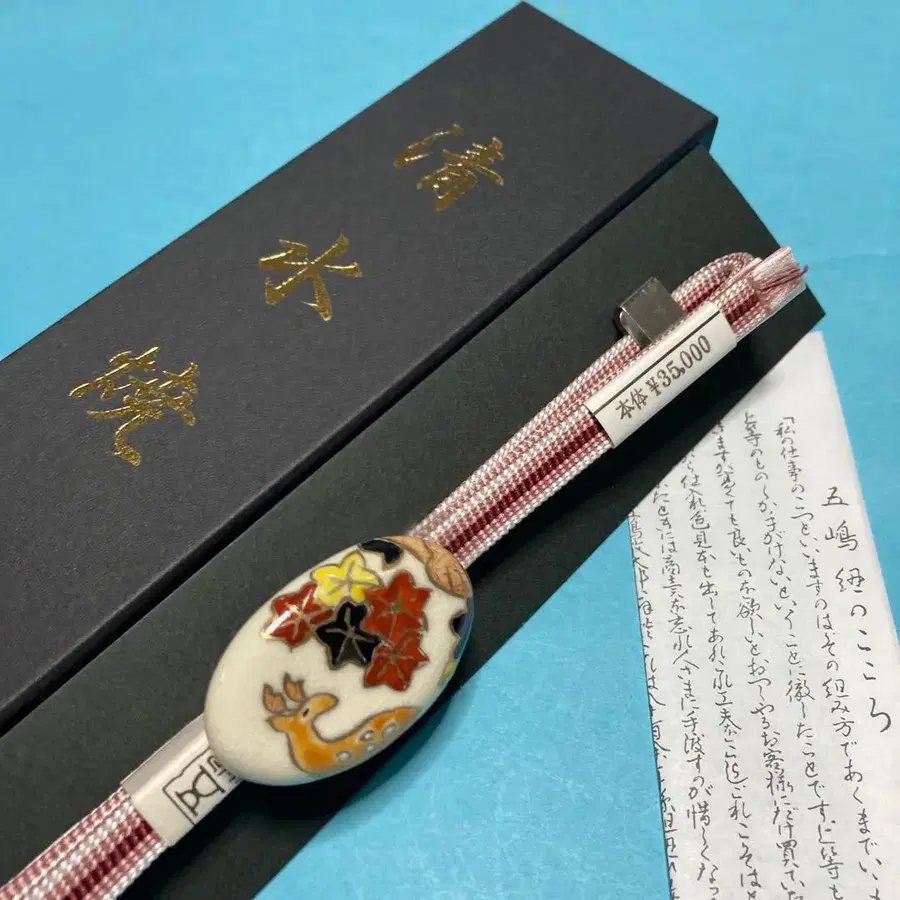 清水焼
本体¥35,000
五嶋紐のこころ
「私の仕事のこつといいますのはその組み方であくまでい
上等のものしか手がけないということに徹したことです
きますが高くても良いものを欲しいとおっしゃるお客様にだけ買っていた
仕入れ色見本も出してあれこれ工夫 これこそは
たときには商売を忘れ人さまに手渡すのが惜しくなっ